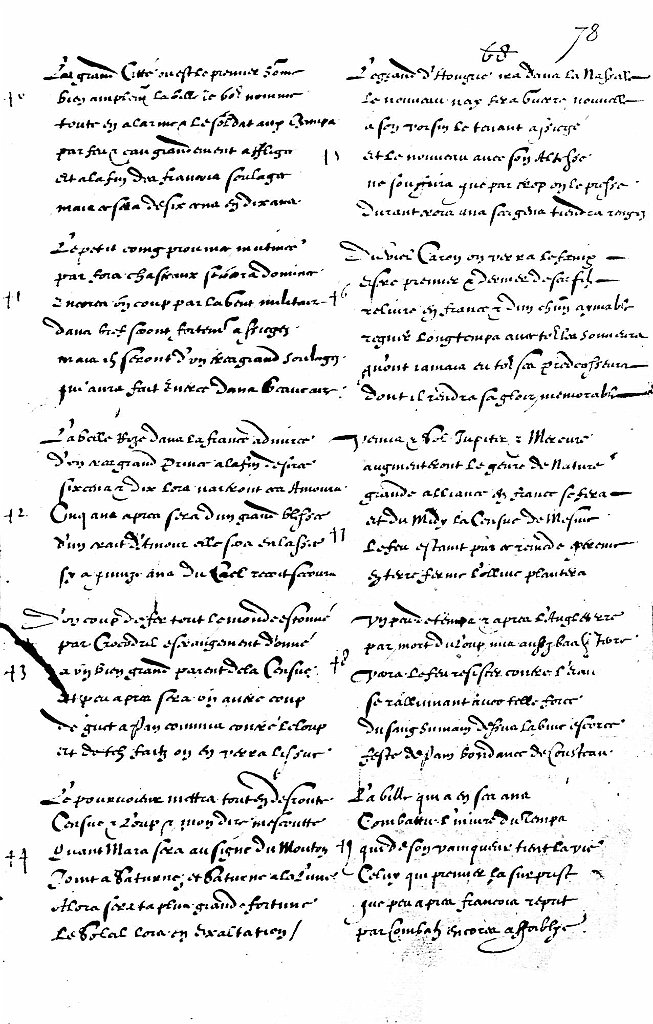 78
68
La grand Citté ou est le premier home
40
bien ampleme la ville ie vo9 nomme
toute en alarme & le soldat aux Champs
par feu & eau grandement affligee
et a la fin des francois soulagee
mais ce sera de six cens & dix ans
Le petit coing provinces mutinees
par fors chasteaux se verra dominees
41
Encores un coup par la gent militaire
dans bref seront fortem assiegez
mais ilz seront d'un tresgrand soulagez
qui aura fait Entree dans Beaucaire
La belle Roze dans la france admiree
d'un tresgrand Prince a la fin desiree
six cens & dix lors naitront ces Amours
42
Cinq ans apres sera d'un grand blessee
d'un trait d'Amour elle sera enlassee
sy a quinze ans du Ciel recoit secours
D'un coup de fer tout le monde estonné
par Crocodril estrangement donné
43
a un bien grand parent de la Censue
et peu apres sera un autre coup
de guet a pan commis contre le loup
et de telz faitz on en verra l'issue
Le pourvoieur mettra tout en desroute
Censue & Loup & mon dire n'escoutte
44
Quant Mars sera au signe du Mouton
Joint a Saturne et Saturne a la Lune
Alors sera ta plus grande fortune
Le Soleil lors en Exaltation /
Le grand d'Hongrie ira dans la Nasselle
Le nouveau nay fera guerre nouvelle
a son voisin le tenant assiegé
et le nouveau avec son Altesse
ne souffrira que par trop on le presse
durant trois ans ses gens tiendra rengez
Du viel Caron on verra le fenix
46
Estre premier & dernier de ses filz
reluire en france & d'un chun aymable
regner longtemps avec tos les honneurs
qu'ont iamais eu tos ses Predecesseurs
dont il rendra sa gloire memorable
Venus & Sol Jupiter & Mercure
augmenteront le genre de Nature
grande alliance en france se fera
et du Midy la Censue de Mesme
47
Le feu estaint par ce remede extreme
en terre ferme l'ollive plantera
Un peu devt ou apres l'Angleterre
par mort du Loup mis aussy bas q. terre
48
Verra le feu resister contre l'Eau
se ralumant avec telle force
du sang humain dessus l'humaine escorce
feste de pain bondance de Cousteau
La ville qui a en ses ans
Combattu l'iniure du temps
49
qui de son vainqueur tient la vie
Celuy qui premier la surprist
que peu apres francois reprit
par Combatz encores affoiblye